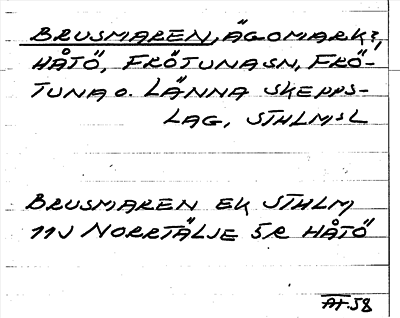 BRUSMAREN, ÄGOMARK?,
HÅTÖ, FRÖTUNA SN, FRÖ-
TUNA O. LÄNNA SKEPPS-
LAG, STHLMSL
BRUSMAREN EK STHLM
11J NORRTÄLJE SR HÅTÖ
AF.58